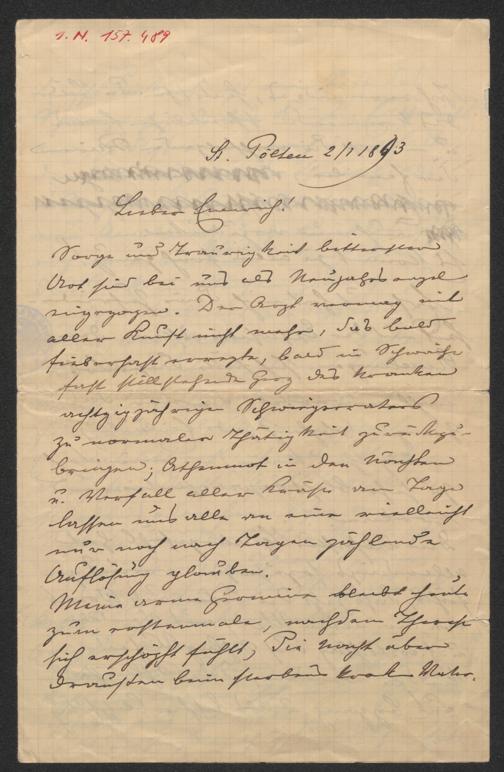 I. N. 157.489
St. Pölten 2/1 1893
Lieber Emerich!
Sorge und Traurigkeit bitterster
Art sind bei uns als Neujahrsengel
eingezogen. Der Arzt vermag mit
aller Kunst nicht mehr, das bald
fieberhaft erregte, bald in Schwäche
fast stillstehende Herz des kranken
achtzigjährigen Schwiegervaters
zu normaler Thätigkeit zurückzu-
bringen; Athemnot in den Nächten
u. Verfall aller Kräfte am Tage
lassen uns alle an eine vielleicht
nur noch nach Tagen zählende
Auflösung glauben.
Meine arme Hermine bleibt heute
zum erstenmale, nachdem Therese
sich erschöpft fühlt, die Nacht über
draußen beim sterbens Vater.